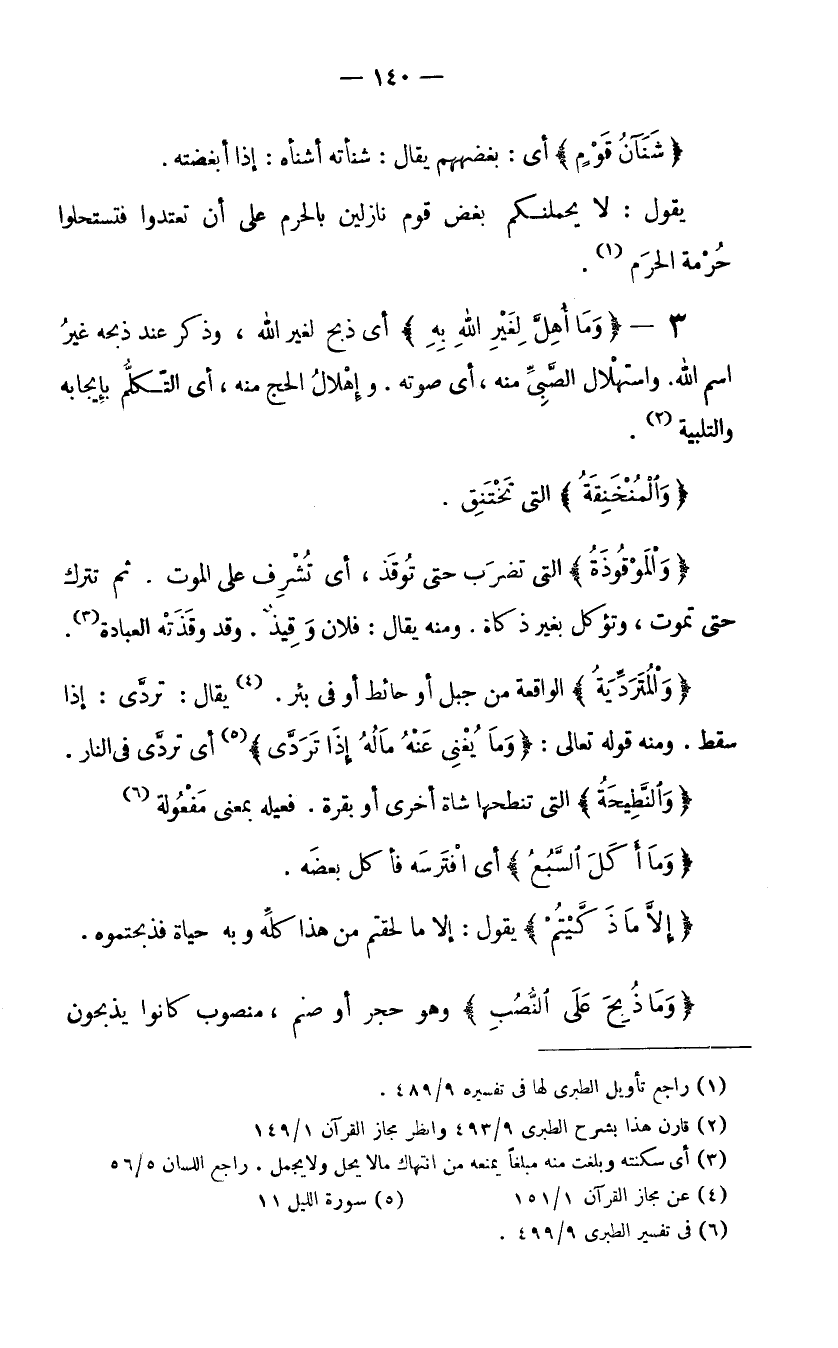 — ١٤٠ —
﴿ شَنَآنُ قَوْمٍ ﴾ أى : بغضهم يقال : شنأته أشنأه : إذا أبغضته .
يقول : لا يحملنكم بغض قوم نازلين بالحرم على أن تعتدوا فتستحلوا
حُرْمة الحرَم (١) .
٣ — ﴿ وَمَا أُهِلَّ لِغَيْرِ اللهِ بِهِ ﴾ أى ذبح لغير الله ، وذكر عند ذبحه غيرُ
اسم الله. واستهْلال الصَّبِيِّ منه ، أى صوته . و إهْلالُ الحج منه ، أى التّكلُّم بإيجابه
والتلبية (٢) .
﴿ وَٱلْمُنْخَنِقَةُ ﴾ التى تَخْتَنِق .
﴿ وَٱلْمَوْقُوذَةُ ﴾ التى تضرَب حتى تُوقَذ ، أى تُشْرِف على الموت . ثم تترك
حتى تموت ، وتؤكل بغير ذكاة . ومنه يقال : فلان وَقِيذٌ . وقد وقَذَتْه العبادة (٣).
﴿ وَٱلْمُتَرَدِّيَةُ ﴾ الواقعة من جبل أو حائط أو فى بئر . (٤) يقال : تردَّى : إذا
سقط . ومنه قوله تعالى : ﴿ وَمَا يُغْنِى عَنْهُ مَالُهُ إِذَا تَرَدَّى ﴾(٥) أى تردَّى فى النار .
﴿ وَٱلنَّطِيحَةُ ﴾ التى تنطحها شاة أخرى أو بقرة . فعيله بمعنى مَفْعُولة (٦)
﴿ وَمَا أَكَلَ ٱلسَّبُعُ ﴾ أى افْتَرسَه فأكل بعضَه .
﴿ إِلاَّ مَاذَكَّيْتُمْ ﴾ يقول : إلا ما لحقتم من هذا كلِّه و به حياة فذبحتموه .
﴿ وَمَا ذُبِحَ عَلَى ٱلنُّصُبِ ﴾ وهو حجر أو صنم ، منصوب كانوا يذبحون
(١) راجع تأويل الطبرى لها فى تفسيره ٤٨٩/٩ .
(٢) قارن هذا بشرح الطبرى ٤٩٣/٩ وانظر مجاز القرآن ١٤٩/١
(٣) أى سكنته وبلغت منه مبلغاً يمنعه من انتهاك مالا يحل ولايجمل . راجع اللسان ٥٦/٥
(٤) عن مجاز القرآن ١٥١/١ (٥) سورة الليل ١١
(٦) فى تفسير الطبرى ٤٩٩/٩ .